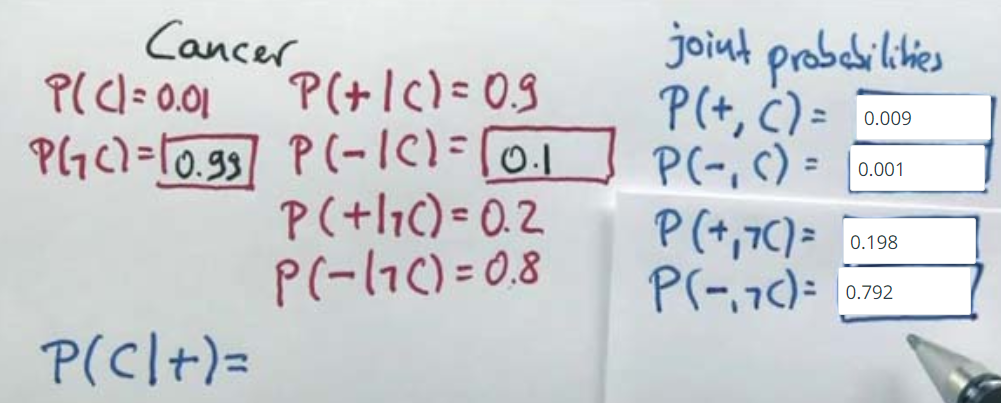 Cancer
P(C)= 0.01
P(¬C)= 0.99
P(+|C)= 0.9
P(-|C)= 0.1
P(+|¬C)= 0.2
P(-|¬C)= 0.8
P(C|+)=
joint probabilities
P(+, C)= 0.009
P(-, C)= 0.001
P(+,¬C)= 0.198
P(-,¬C)= 0.792